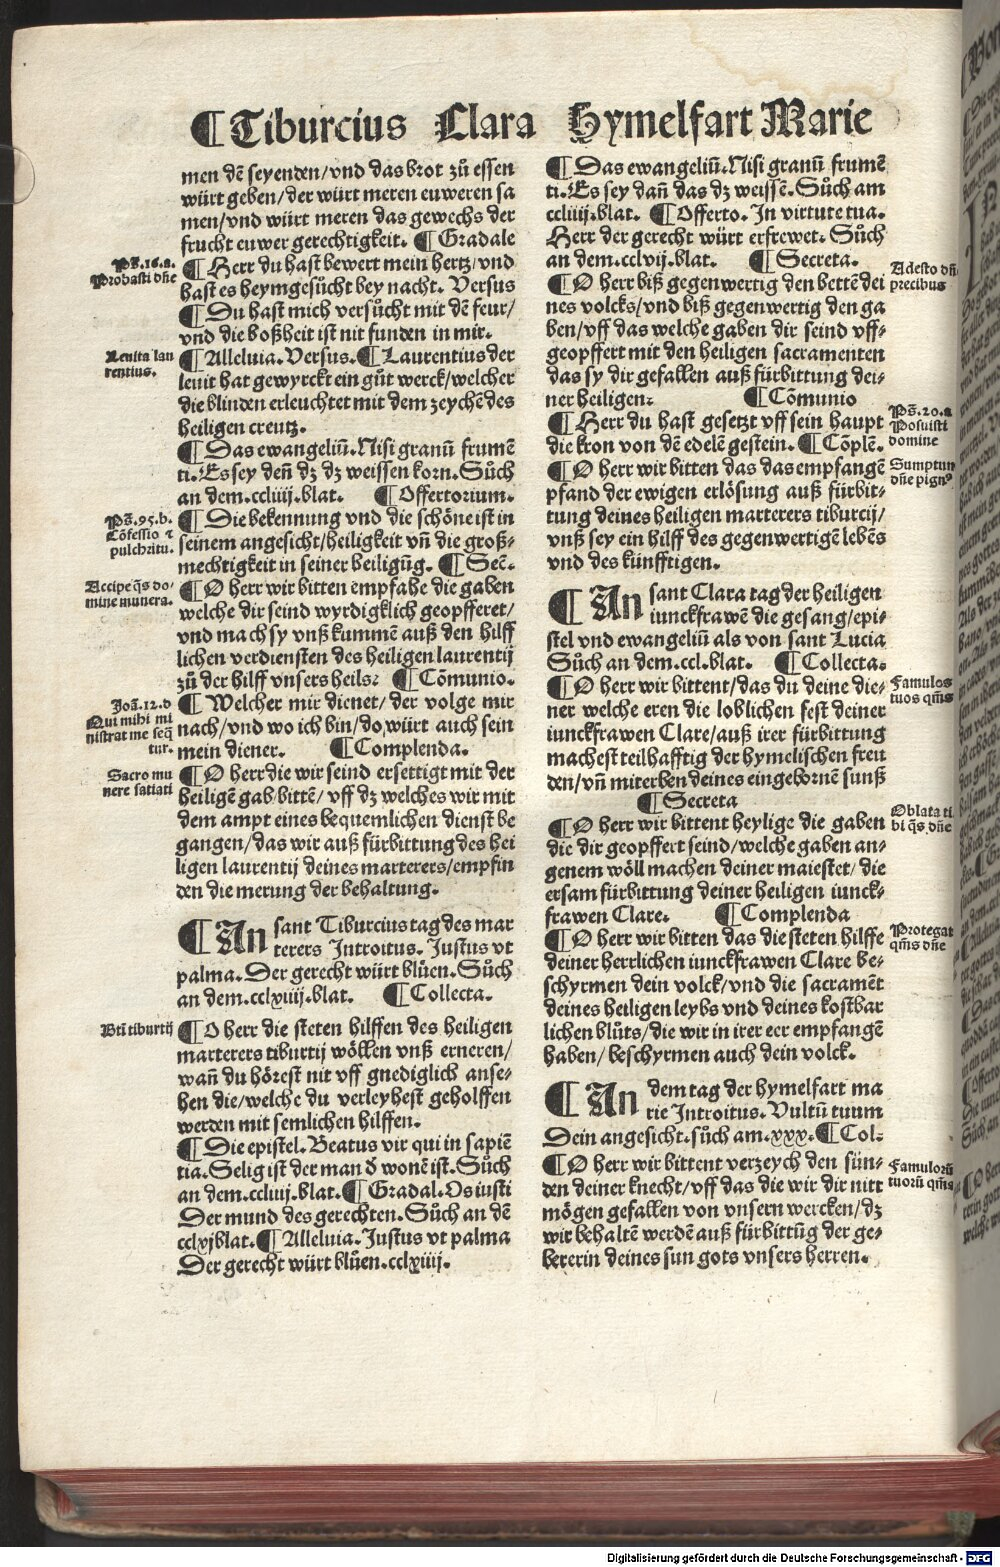 ¶ Tiburcius Clara Hymelfart Marie
men dē seyenden/vnd das brot zů essen
würt geben/der würt meren euweren sa
men/vnd würt meren das gewechs der
frucht euwer gerechtigkeit. ¶ Gradale
Ps̄.16.a.
Probasti dn̄e
¶ Herr du hast bewert mein hertz/vnd
hast es heymgesůcht bey nacht. Versus
¶ Du hast mich versůcht mit dē feur/
vnd die boßheit ist nit funden in mir.
Leuita lau
rentius.
¶ Alleluia. Versus. ¶ Laurentius der
leuit hat gewyrckt ein gůt werck/welcher
die blinden erleuchtet mit dem zeychē des
heiligen creutz.
¶ Das ewangeliū. Nisi granū frumē
ti. Es sey deñ dz dz weissen korn. Sůch
an dem.ccliiij.blat. ¶ Offertorium.
Ps̄.95.b.
Cōfessio ⁊
pulchritu.
¶ Die bekennung vnd die schöne ist in
seinem angesicht/heiligkeit vñ die groß⸗
mechtigkeit in seiner heiligūg. ¶ Secē.
Accipe q̄s do⸗
mine munera.
¶ O herr wir bitten empfahe die gaben
welche dir seind wyrdigklich geopfferet/
vnd mach sy vnß kummē auß den hilff
lichen verdiensten des heiligen laurentij
zů der hilff vnsers heils: ¶ Cōmunio.
Joā.12.d
Qui mihi mi
nistrat me seq̄
tur.
¶ Welcher mir dienet/der volge mir
nach/vnd wo ich bin/do würt auch sein
mein diener. ¶ Complenda.
Sacro mu
nere satiati
¶ O herr die wir seind ersettigt mit der
heiligē gab/bittē/vff dz welches wir mit
dem ampt eines bequemlichen dienst be
gangen/das wir auß fürbittung des hei
ligen laurentij deines marterers/empfin
den die merung der behaltung.
¶ An sant Tiburcius tag des mar
terers Introitus. Justus vt
palma. Der gerecht würt blůen. Sůch
an dem.cclxiiij.blat. ¶ Collecta.
Btī tiburtij
¶ O herr die steten hilffen des heiligen
marterers tiburtij wöllen vnß erneren/
wañ du hörest nit vff gnediglich anse⸗
hen die/welche du verleyhest geholffen
werden mit semlichen hilffen.
¶ Die epistel. Beatus vir qui in sapiē
tia. Selig ist der man ð wonē ist. Sůch
an dem.ccliiij.blat. ¶ Gradal. Os iusti
Der mund des gerechten. Sůch an dē
cclxjblat. ¶ Alleluia. Justus vt palma
Der gerecht würt blůen.cclxiiij.
¶ Das ewangeliū. Nisi granū frumē
ti. Es sey dañ das dz weissē. Sůch am
ccliiij.blat. ¶ Offerto. In virtute tua.
Herr der gerecht würt erfrewet. Sůch
an dem.cclvij.blat. ¶ Secreta.
Adesto dn̄
precibus
¶ O herr biß gegenwertig den bettē dei
nes volcks/vnd biß gegenwertig den ga
ben/vff das welche gaben dir seind vff⸗
geopffert mit den heiligen sacramenten
das sy dir gefallen auß fürbittung dei⸗
ner heiligen: ¶ Cōmunio
Ps̄.20.a
Posuisti
domine
¶ Herr du hast gesetzt vff sein haupt
die kron von dē edelē gestein. ¶ Cōplē.
Sumptum
dn̄e pignꝰ
¶ O herr wir bitten das das empfangē
pfand der ewigen erlösung auß fürbit⸗
tung deines heiligen marterers tiburcij/
vnß sey ein hilff des gegenwertigē lebēs
vnd des künfftigen.
¶ An sant Clara tag der heiligen
iunckfrawē die gesang/epi⸗
stel vnd ewangeliū als von sant Lucia
Sůch an dem.ccl.blat. ¶ Collecta.
Famulos
tuos qm̄s
¶ O herr wir bittent/das du deine die⸗
ner welche eren die loblichen fest deiner
iunckfrawen Clare/auß irer fürbittung
machest teilhafftig der hymelischen freu
den/vñ miterben deines eingebornē sunß
¶ Secreta
Oblata ti
bi q̄s dn̄e
¶ O herr wir bittent heylige die gaben
die dir geopffert seind/welche gaben an⸗
genem wöll machen deiner maiestet/die
ersam fürbittung deiner heiligen iunck⸗
frawen Clare. ¶ Complenda
Protegat
qm̄s dn̄e
¶ O herr wir bitten das die steten hilffe
deiner herrlichen iunckfrawen Clare be⸗
schyrmen dein volck/vnd die sacramēt
deines heiligen leybs vnd deines kostbar
lichen blůts/die wir in irer eer empfangē
haben/beschyrmen auch dein volck.
¶ An dem tag der hymelfart ma
rie Introitus. Vultū tuum
Dein angesicht. sůch am.xxx. ¶ Col⸗
Famulorū
tuorū qm̄s
¶ O herr wir bittent verzeych den sün⸗
den deiner knecht/vff das die wir dir nitt
mögen gefallen von vnsern wercken/dz
wir behaltē werdē auß fürbittūg der ge⸗
bererin deines sun gots vnsers herren.
Digitalisierung gefördert durch die Deutsche Forschungsgemeinschaft - DFG